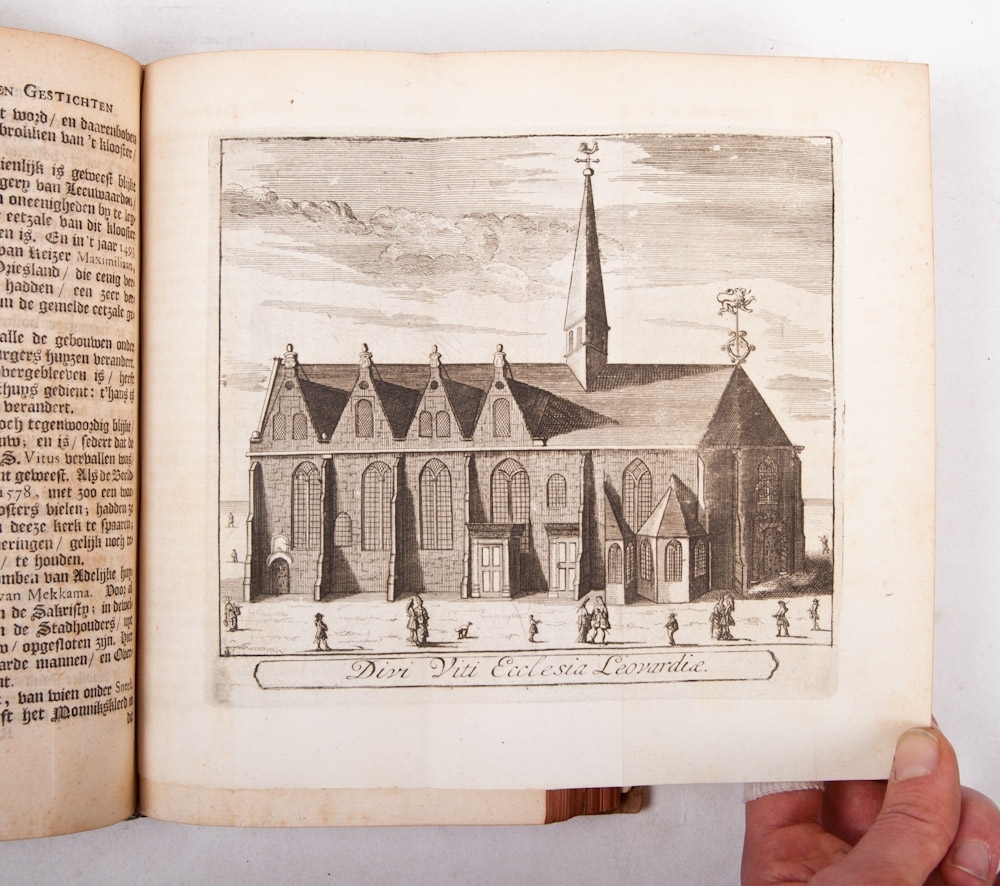 EN GESTICHTEN
t word/ en daarenboven
brokken van 't klooster/
ienlijk is geweest blijkt
gery van Leeuwaarden/
oneenigheden by te leg-
eetzale van dit klooster
en is. En in't jaar 1493
van Keizer Maximiliaan,
Vriesland/ die eenig ver-
hadden/ een zeer ver-
in de gemelde eetzale ge-
alle de gebouwen onder
urgers huyzen verandert.
overgebleeven is/ heeft
thuys gedient: t'hans is
verandert.
och tegenwoordig blijkt/
uw; en is/ sedert dat de
S. Vitus vervallen was/
nt geweest. Als de Beeld-
1578, met zoo een woe-
osters vielen; hadden ze
deeze kerk te spaaren;
eringen/ gelijk noch
/ te houden.
omben van Adelijke
van Mekkama. Voor al
n de Sakristy; in
n de Stadhouders/ uyt
w/ opgesloten zijn. Hier
arde mannen/ en
nt.
, van wien onder Sneek
ft het Monnikskleed in
de
Divi Viti Ecclesia Leovardiæ.